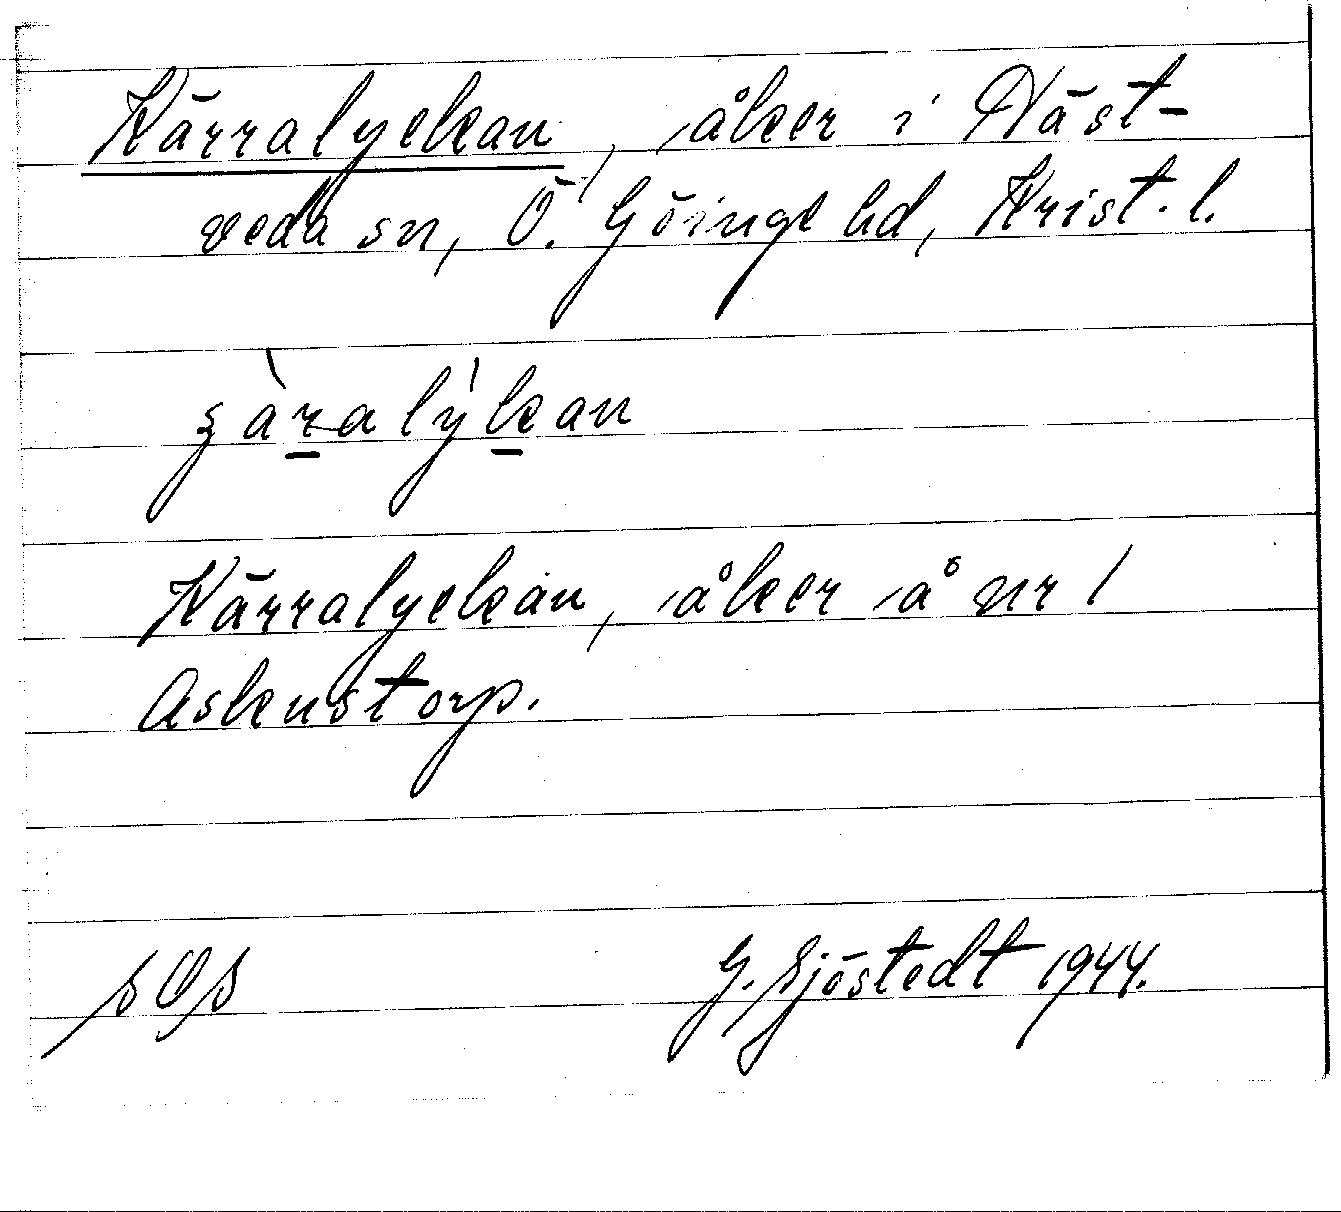 Kärralyckan, åker i Näst-
veda sn, Ö. Göinge hd, Krist. l.
Kärralyckan, åker å nr 1
Askenstorp.
G. Sjöstedt 1944.